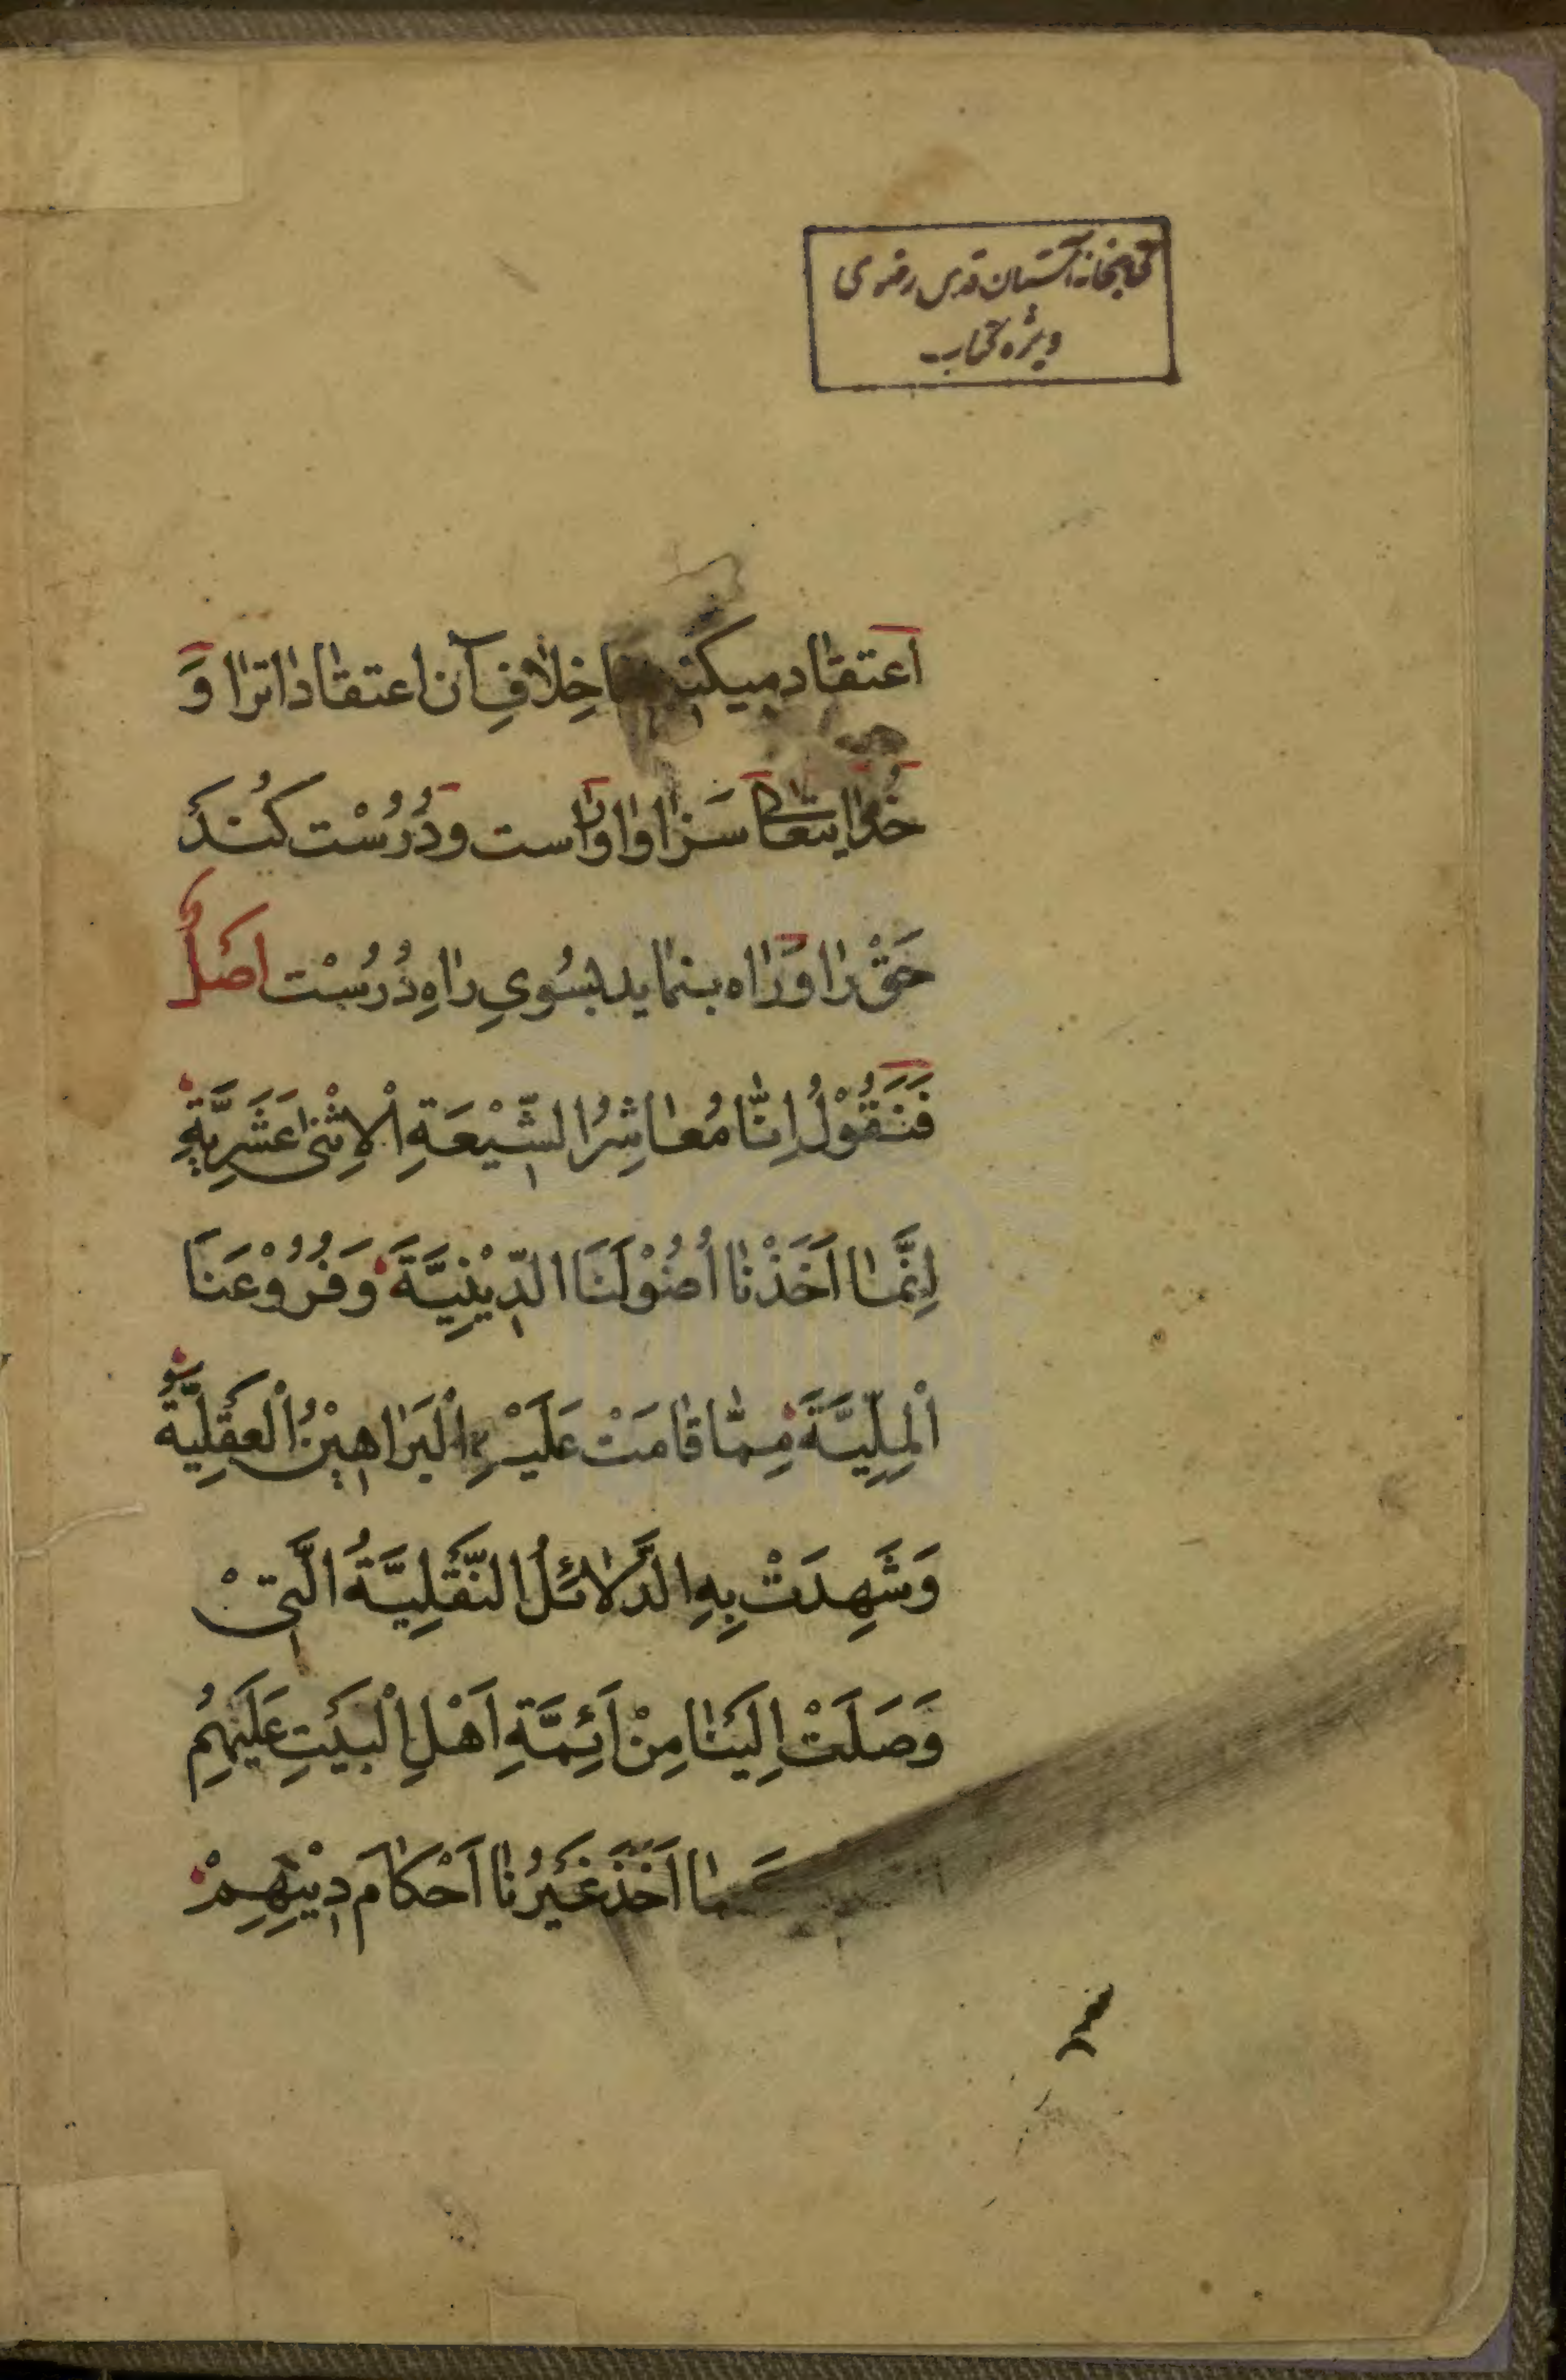 کتابخانه آستان قدس رضوی
ویژه کتاب
اعتقاد میکنیم ما خِلافِ آن اعتقادات را وَ
خُدایتعالی سَزاوار است وَ دُرُسْت کُنَد
حَقْ را وَ راه بنماید بسُویِ راهِ دُرُسْت اَصْلٌ
فَنَقُوْلُ اِنّا مُعاشِرُ الشِّیْعَةِ الْاِثْنٰی عَشَرِیَّةِ
اِنَّمٰا اَخَذْنٰا اُصُوْلَنَا الدِّیْنِیَّةَ وَفُرُوْعَنَا
الْمِلِّیَّةَ مِمّٰا قٰامَتْ عَلَیْهِ الْبَرٰاهِیْنُ الْعَقْلِیَّةُ
وَشَهِدَتْ بِهِ الدَّلٰائِلُ النَّقْلِیَّةُ الَّتِیْ
وَصَلَتْ اِلَیْنٰا مِنْ اَئِمَّةِ اَهْلِ الْبَیْتِ عَلَیْهِمُ
کَمٰا اَخَذَ غَیْرُنٰا اَحْکٰامَ دِیْنِهِمْ